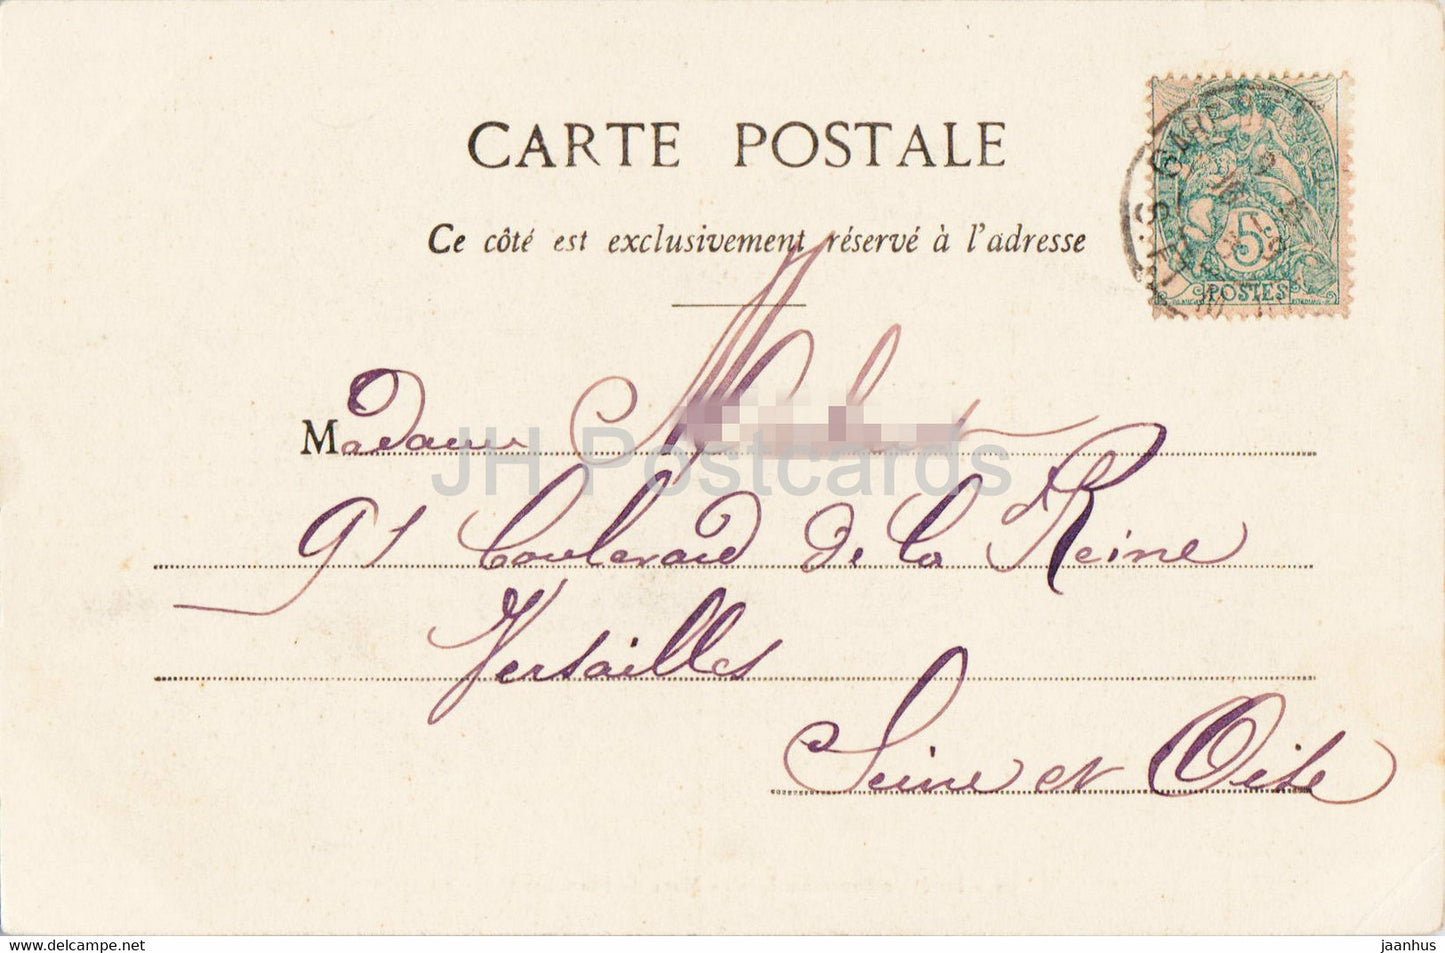 CARTE POSTALE
Ce côté est exclusivement réservé à l'adresse
5
POSTES
GARE
Madame
JH Postcards
91 boulevard de la Reine
Versailles
Seine et Oise
jaanhus
https://www.jhpostcards.net